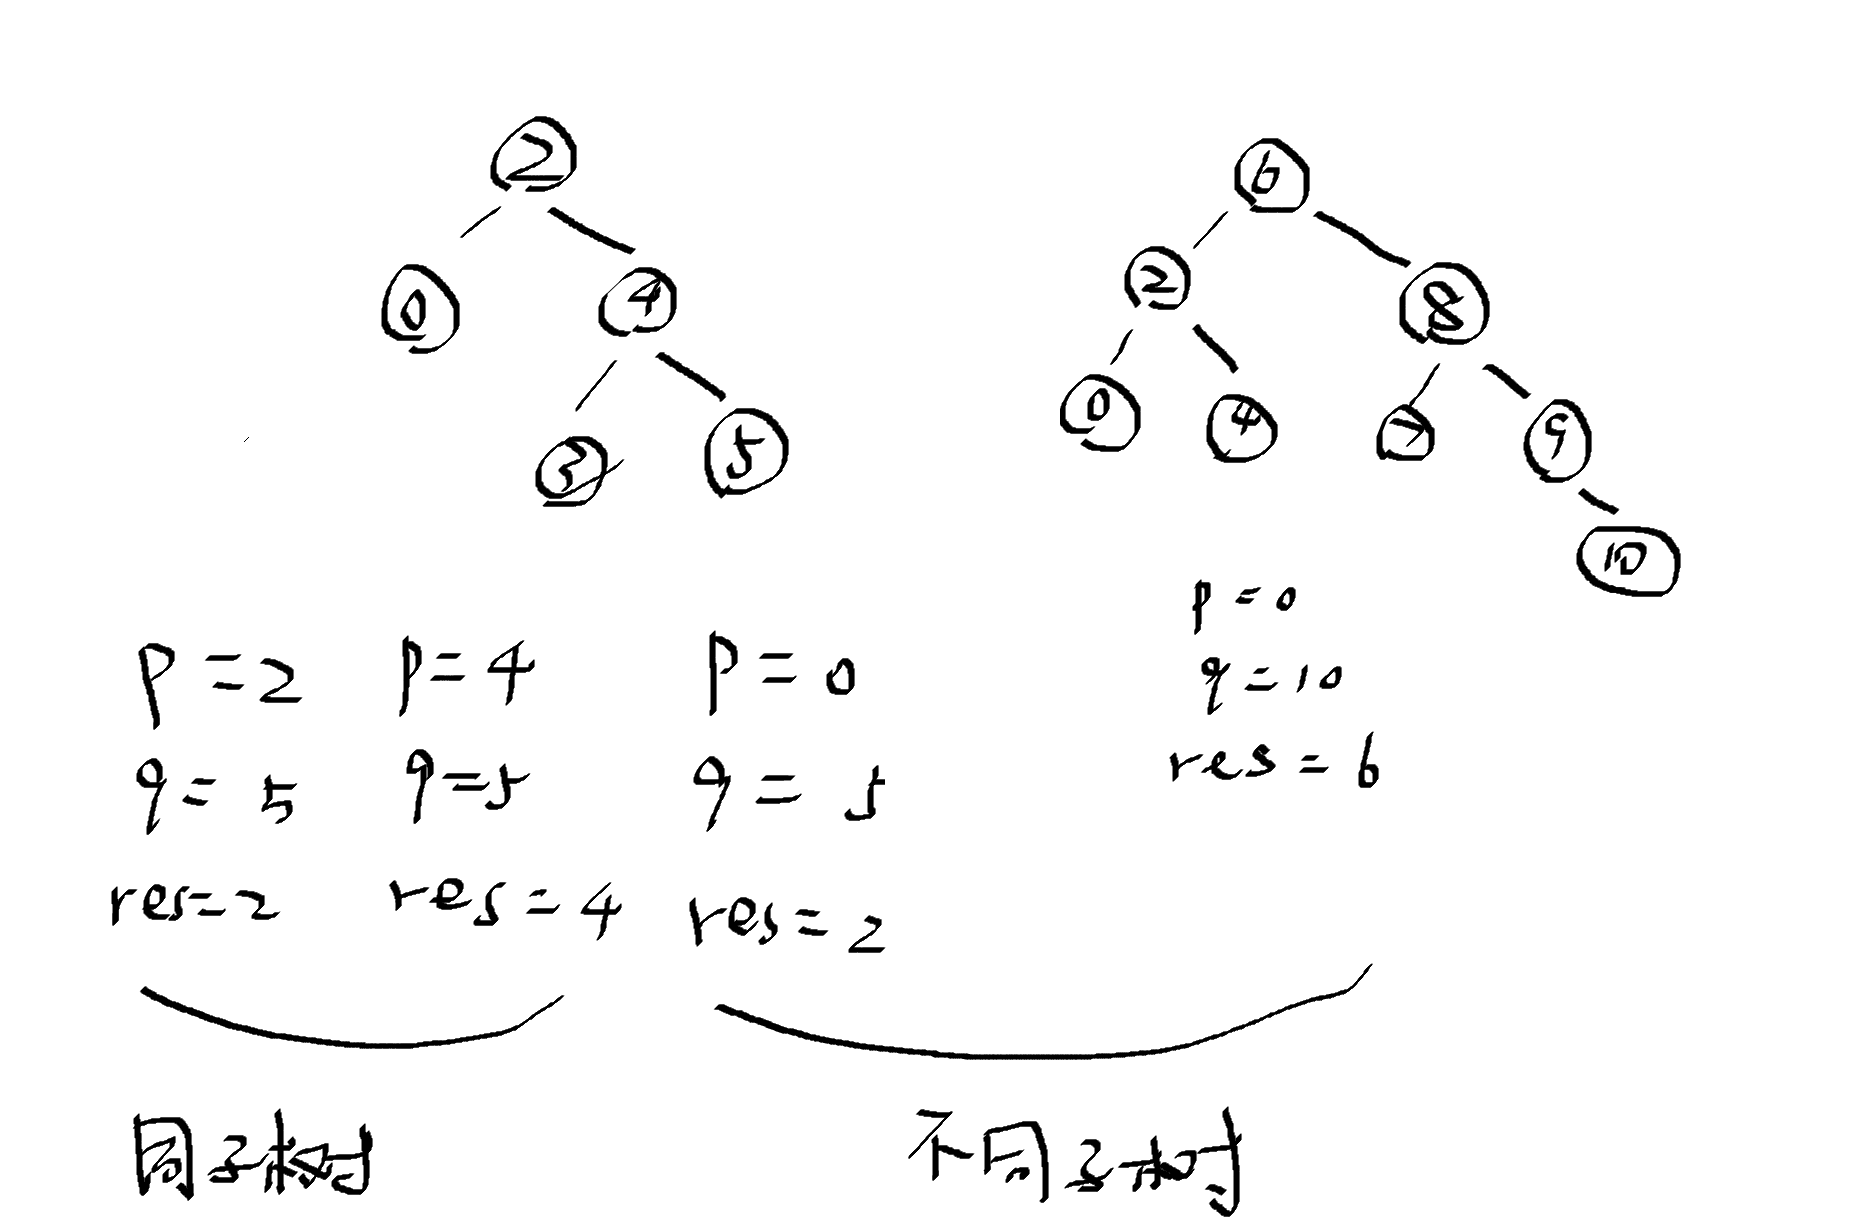 2
0
4
3
5
6
2
8
0
4
7
9
10
p=2
q=5
res=2
p=4
q=5
res=4
p=0
q=5
res=2
p=0
q=10
res=6
同子树
不同子树